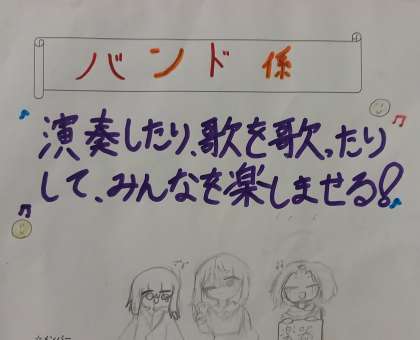 バンド 係
演奏したり、歌を歌ったり
して、みんなを楽しませる!
楽譜
☆メンバー